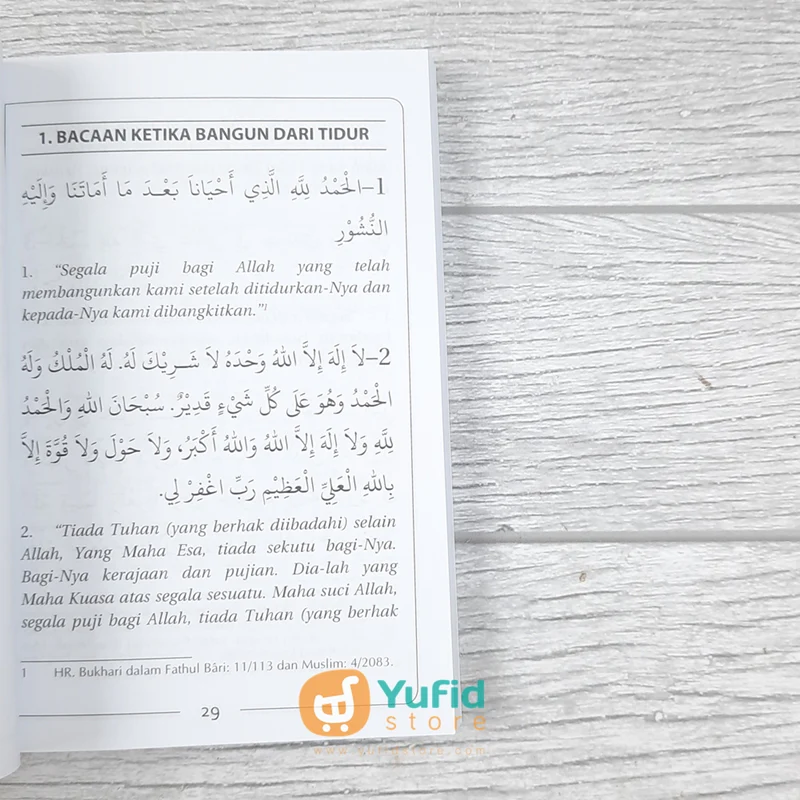 1. BACAAN KETIKA BANGUN DARI TIDUR
1–الْحَمْدُ لِلَّهِ الَّذِي أَحْيَاناَ بَعْدَ مَا أَمَاتَنَا وَإِلَيْهِ
النُّشُوْرِ
1. “Segala puji bagi Allah yang telah
membangunkan kami setelah ditidurkan-Nya dan
kepada-Nya kami dibangkitkan.”¹
2–لاَ إِلَهَ إِلاَّ اللهُ وَحْدَهُ لاَ شَرِيْكَ لَهُ. لَهُ الْمُلْكُ وَلَهُ
الْحَمْدُ وَهُوَ عَلَى كُلِّ شَيْءٍ قَدِيْرٌ. سُبْحَانَ اللهِ وَالْحَمْدُ
لِلَّهِ وَلاَ إِلَهَ إِلاَّ اللهُ وَاللهُ أَكْبَرُ، وَلاَ حَوْلَ وَلاَ قُوَّةَ إِلاَّ
بِاللهِ الْعَلِيِّ الْعَظِيْمِ رَبِّ اغْفِرْ لِي.
2. “Tiada Tuhan (yang berhak diibadahi) selain
Allah, Yang Maha Esa, tiada sekutu bagi-Nya.
Bagi-Nya kerajaan dan pujian. Dia-lah yang
Maha Kuasa atas segala sesuatu. Maha suci Allah,
segala puji bagi Allah, tiada Tuhan (yang berhak
1 HR. Bukhari dalam Fathul Bâri: 11/113 dan Muslim: 4/2083.
29
Yufid
store